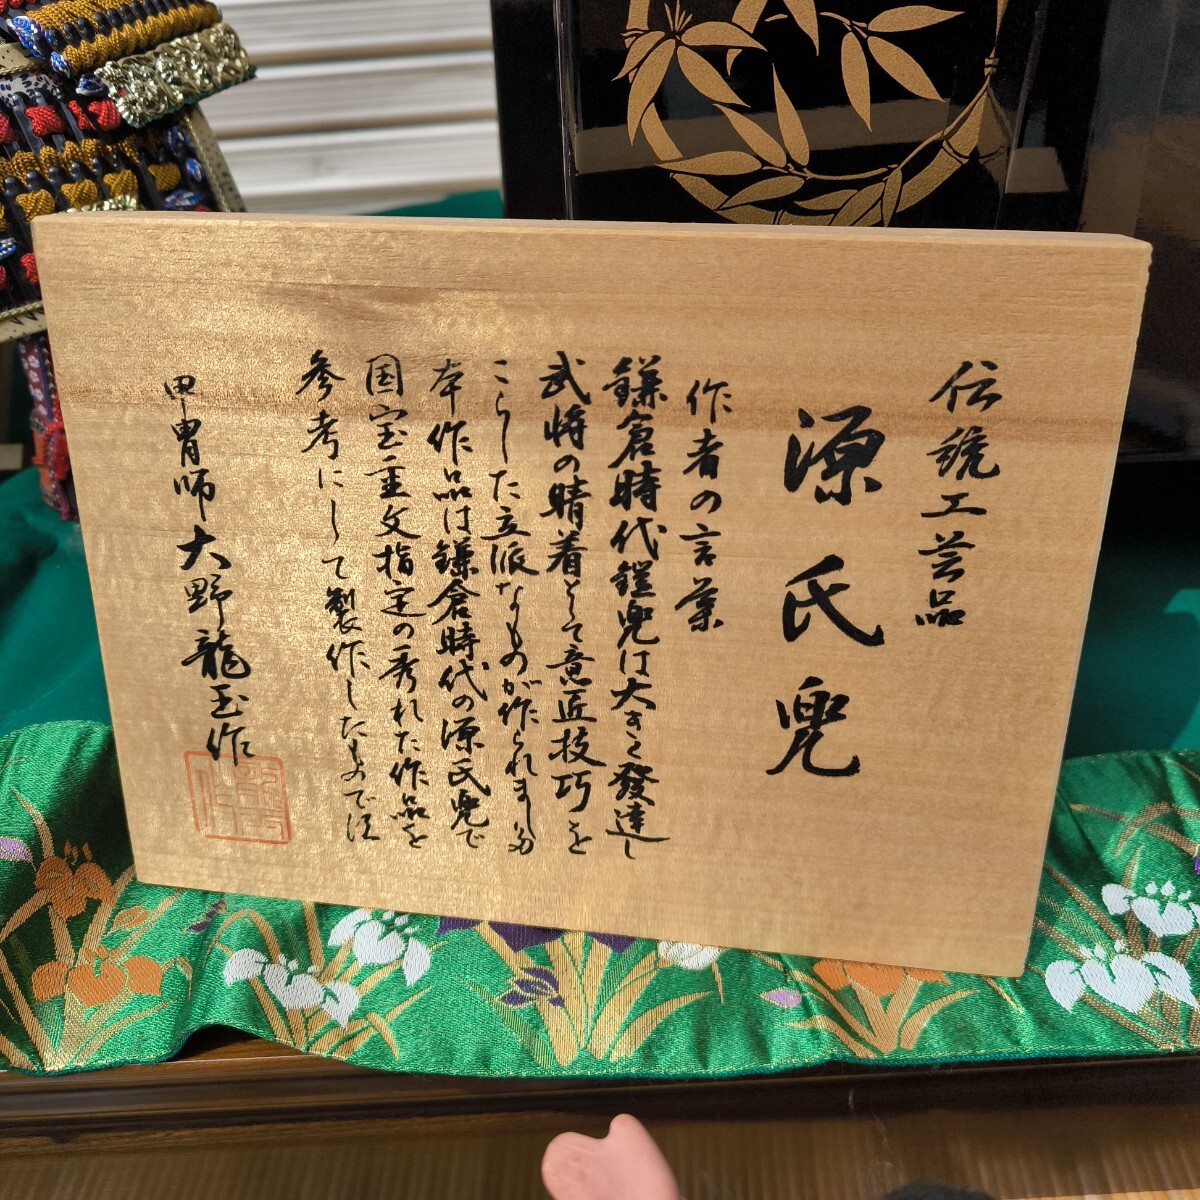 伝統工芸品
源氏兜
作者の言葉
鎌倉時代鎧兜は大きく發達し
武将の晴着として意匠技巧を
こらした立派なものが作られました
本作品は鎌倉時代の源氏兜で
国宝重文指定の秀れた作品を
参考にして製作したものです
甲冑師大野龍玉作